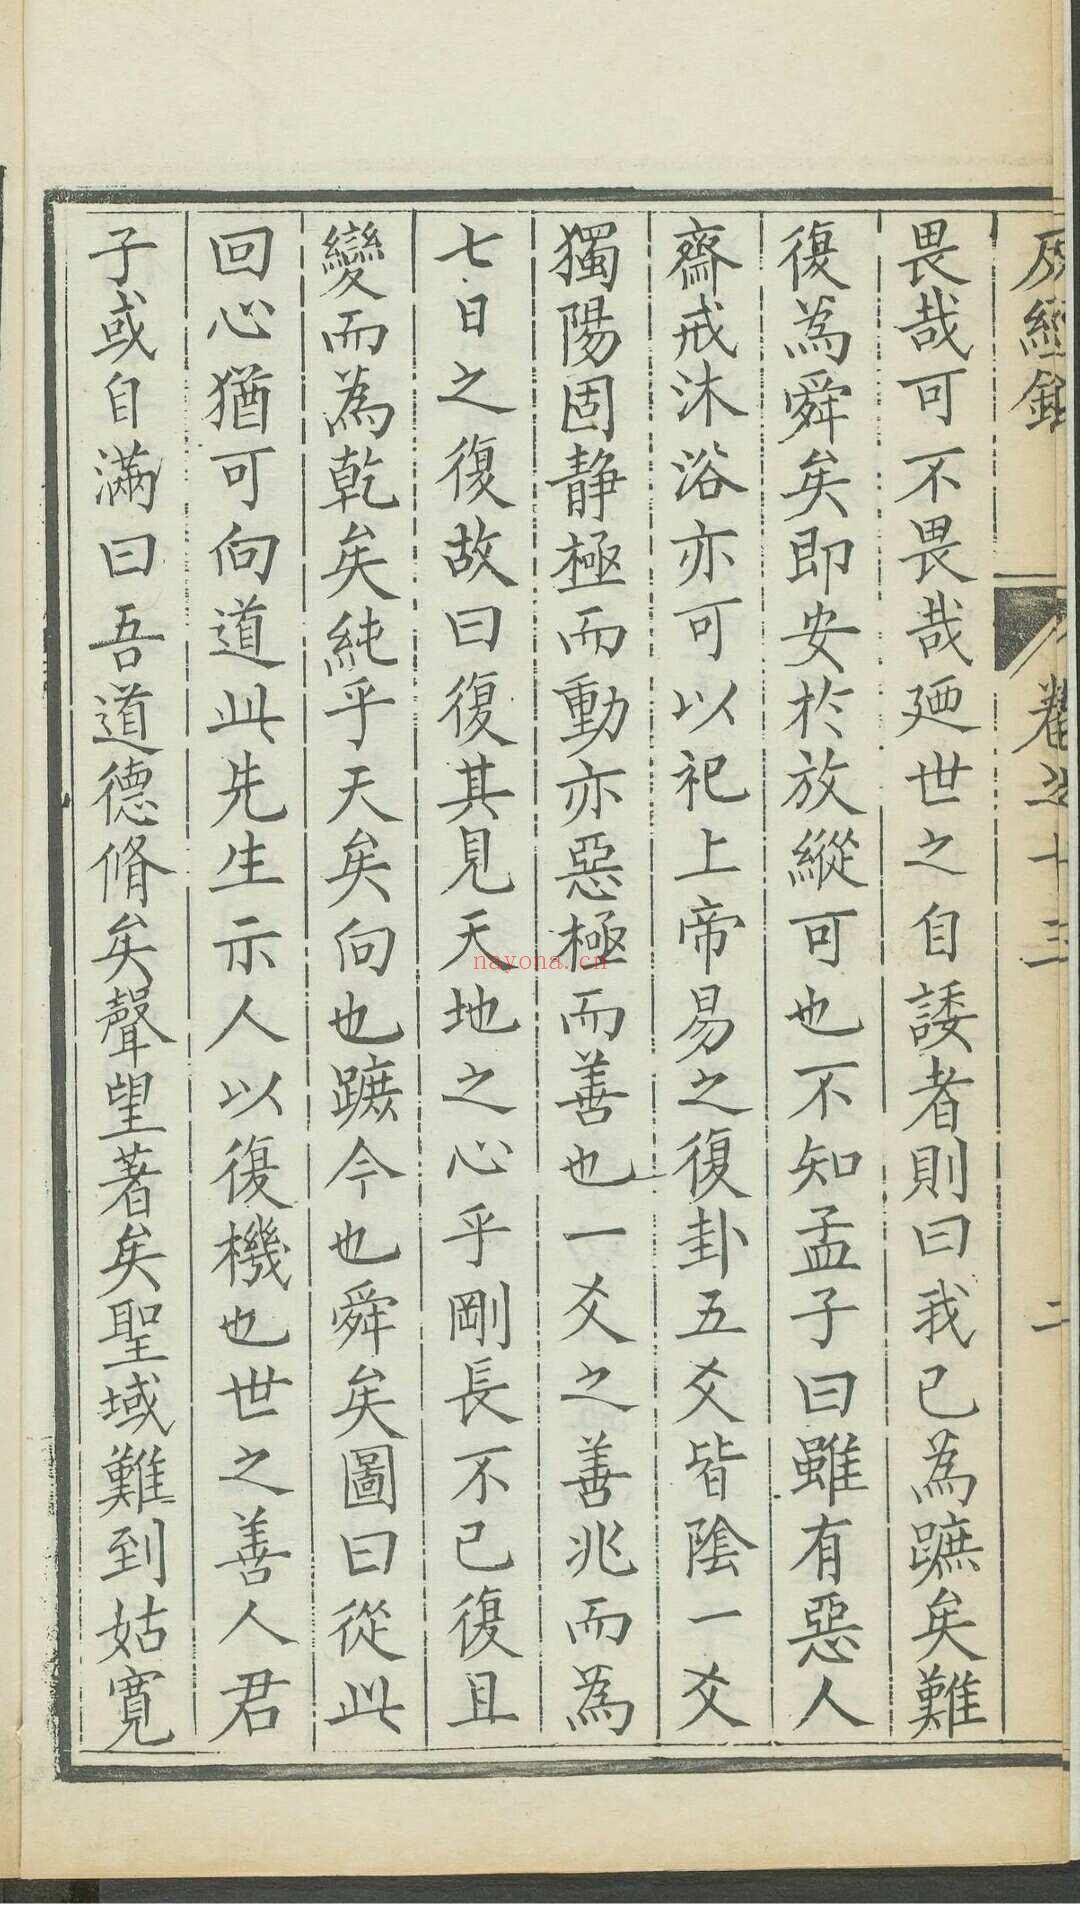 畏哉可不畏哉廼世之自諉者則曰我已為蹠矣難
復為舜矣即安於放縱可也不知孟子曰雖有惡人
齋戒沐浴亦可以祀上帝易之復卦五爻皆陰一爻
獨陽固靜極而動亦惡極而善也一爻之善兆而為
七日之復故曰復其見天地之心乎剛長不已復且
變而為乾矣純乎天矣向也蹠今也舜矣圖曰從此
回心猶可向道此先生示人以復機也世之善人君
子或自滿曰吾道德脩矣聲望著矣聖域難到姑寬
卷之十三
二
nayona.cn